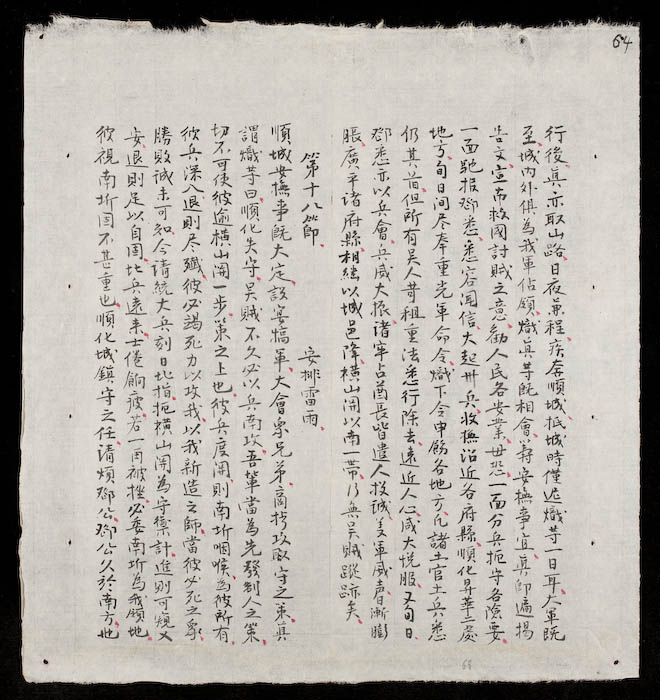 64
行後真亦取山路日夜兼程疾奔順城抵城時僅遲熾等一日耳大軍既
至城內外俱為我軍佔領熾真等既相會籌安撫事宜真即遍揚
告文宣布救國討賊之意勸人民各安業毋恐一面分兵扼守各險要
一面馳報鄧悉悉容聞信大起卅兵收撫沿近各府縣順化昇華二處
地方旬日間尽奉重光軍命令熾下令申飭各地方凡諸土官土兵悉
仍其旧但所有吳人苛租重法悉行除去遠近人心咸大悅服又旬日
鄧悉亦以兵會兵威大振諸牢占酋長皆遣人投誠義軍威声漸膨
脹廣平諸府縣相繼以城邑降橫山関以南一帶行無吳賊蹤跡矣
第十八節 安排雷雨
順城安撫事既大定設宴犒軍大會眾兄弟商榷攻取守之策真
謂熾等曰順化失守吳賊不久必以兵南攻吾輩當為先發制人之策
切不可使彼逾橫山関一步策之上也彼兵度関則南圻咽喉為彼所有
彼兵深入退則尽殲彼必竭死力以攻我以我新造之師當彼必死之眾
勝敗誠未可知今請統大兵刻日北指扼橫山関為守禦計進則可窺乂
安退則足以自固北兵遠來士倦餉疲若一再被挫必委南圻為我領地
彼視南圻固不甚重也順化城鎮守之任請煩鄧公鄧公久於南方也
68